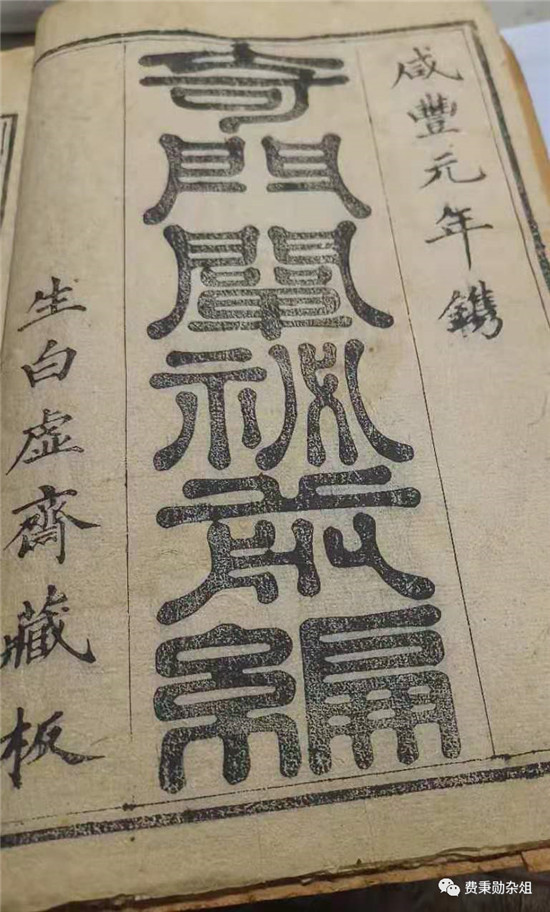 咸豐元年鐫
奇門闡祕編
生白虛齋藏板
费秉勋杂俎